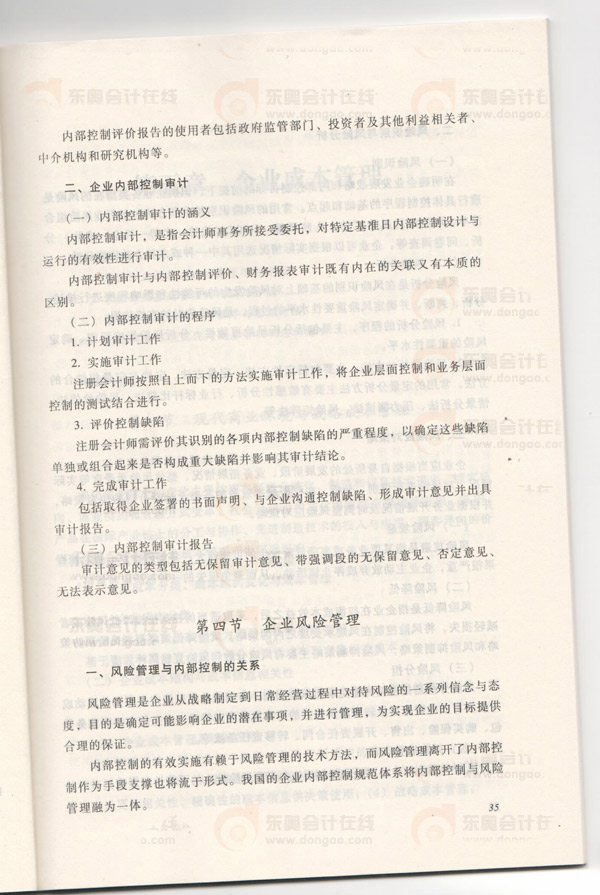 东奥会计在线
www.dongao.com
内部控制评价报告的使用者包括政府监管部门、投资者及其他利益相关者、
中介机构和研究机构等。
二、企业内部控制审计
(一)内部控制审计的涵义
内部控制审计，是指会计师事务所接受委托，对特定基准日内部控制设计与
运行的有效性进行审计。
内部控制审计与内部控制评价、财务报表审计既有内在的关联又有本质的
区别。
(二)内部控制审计的程序
1. 计划审计工作
2. 实施审计工作
注册会计师按照自上而下的方法实施审计工作，将企业层面控制和业务层面
控制的测试结合进行。
3. 评价控制缺陷
注册会计师需评价其识别的各项内部控制缺陷的严重程度，以确定这些缺陷
单独或组合起来是否构成重大缺陷并影响其审计结论。
4. 完成审计工作
包括取得企业签署的书面声明、与企业沟通控制缺陷、形成审计意见并出具
审计报告。
(三)内部控制审计报告
审计意见的类型包括无保留审计意见、带强调段的无保留意见、否定意见、
无法表示意见。
第四节 企业风险管理
一、风险管理与内部控制的关系
风险管理是企业从战略制定到日常经营过程中对待风险的一系列信念与态
度，目的是确定可能影响企业的潜在事项，并进行管理，为实现企业的目标提供
合理的保证。
内部控制的有效实施有赖于风险管理的技术方法，而风险管理离开了内部控
制作为手段支撑也将流于形式。我国的企业内部控制规范体系将内部控制与风险
管理融为一体。
35